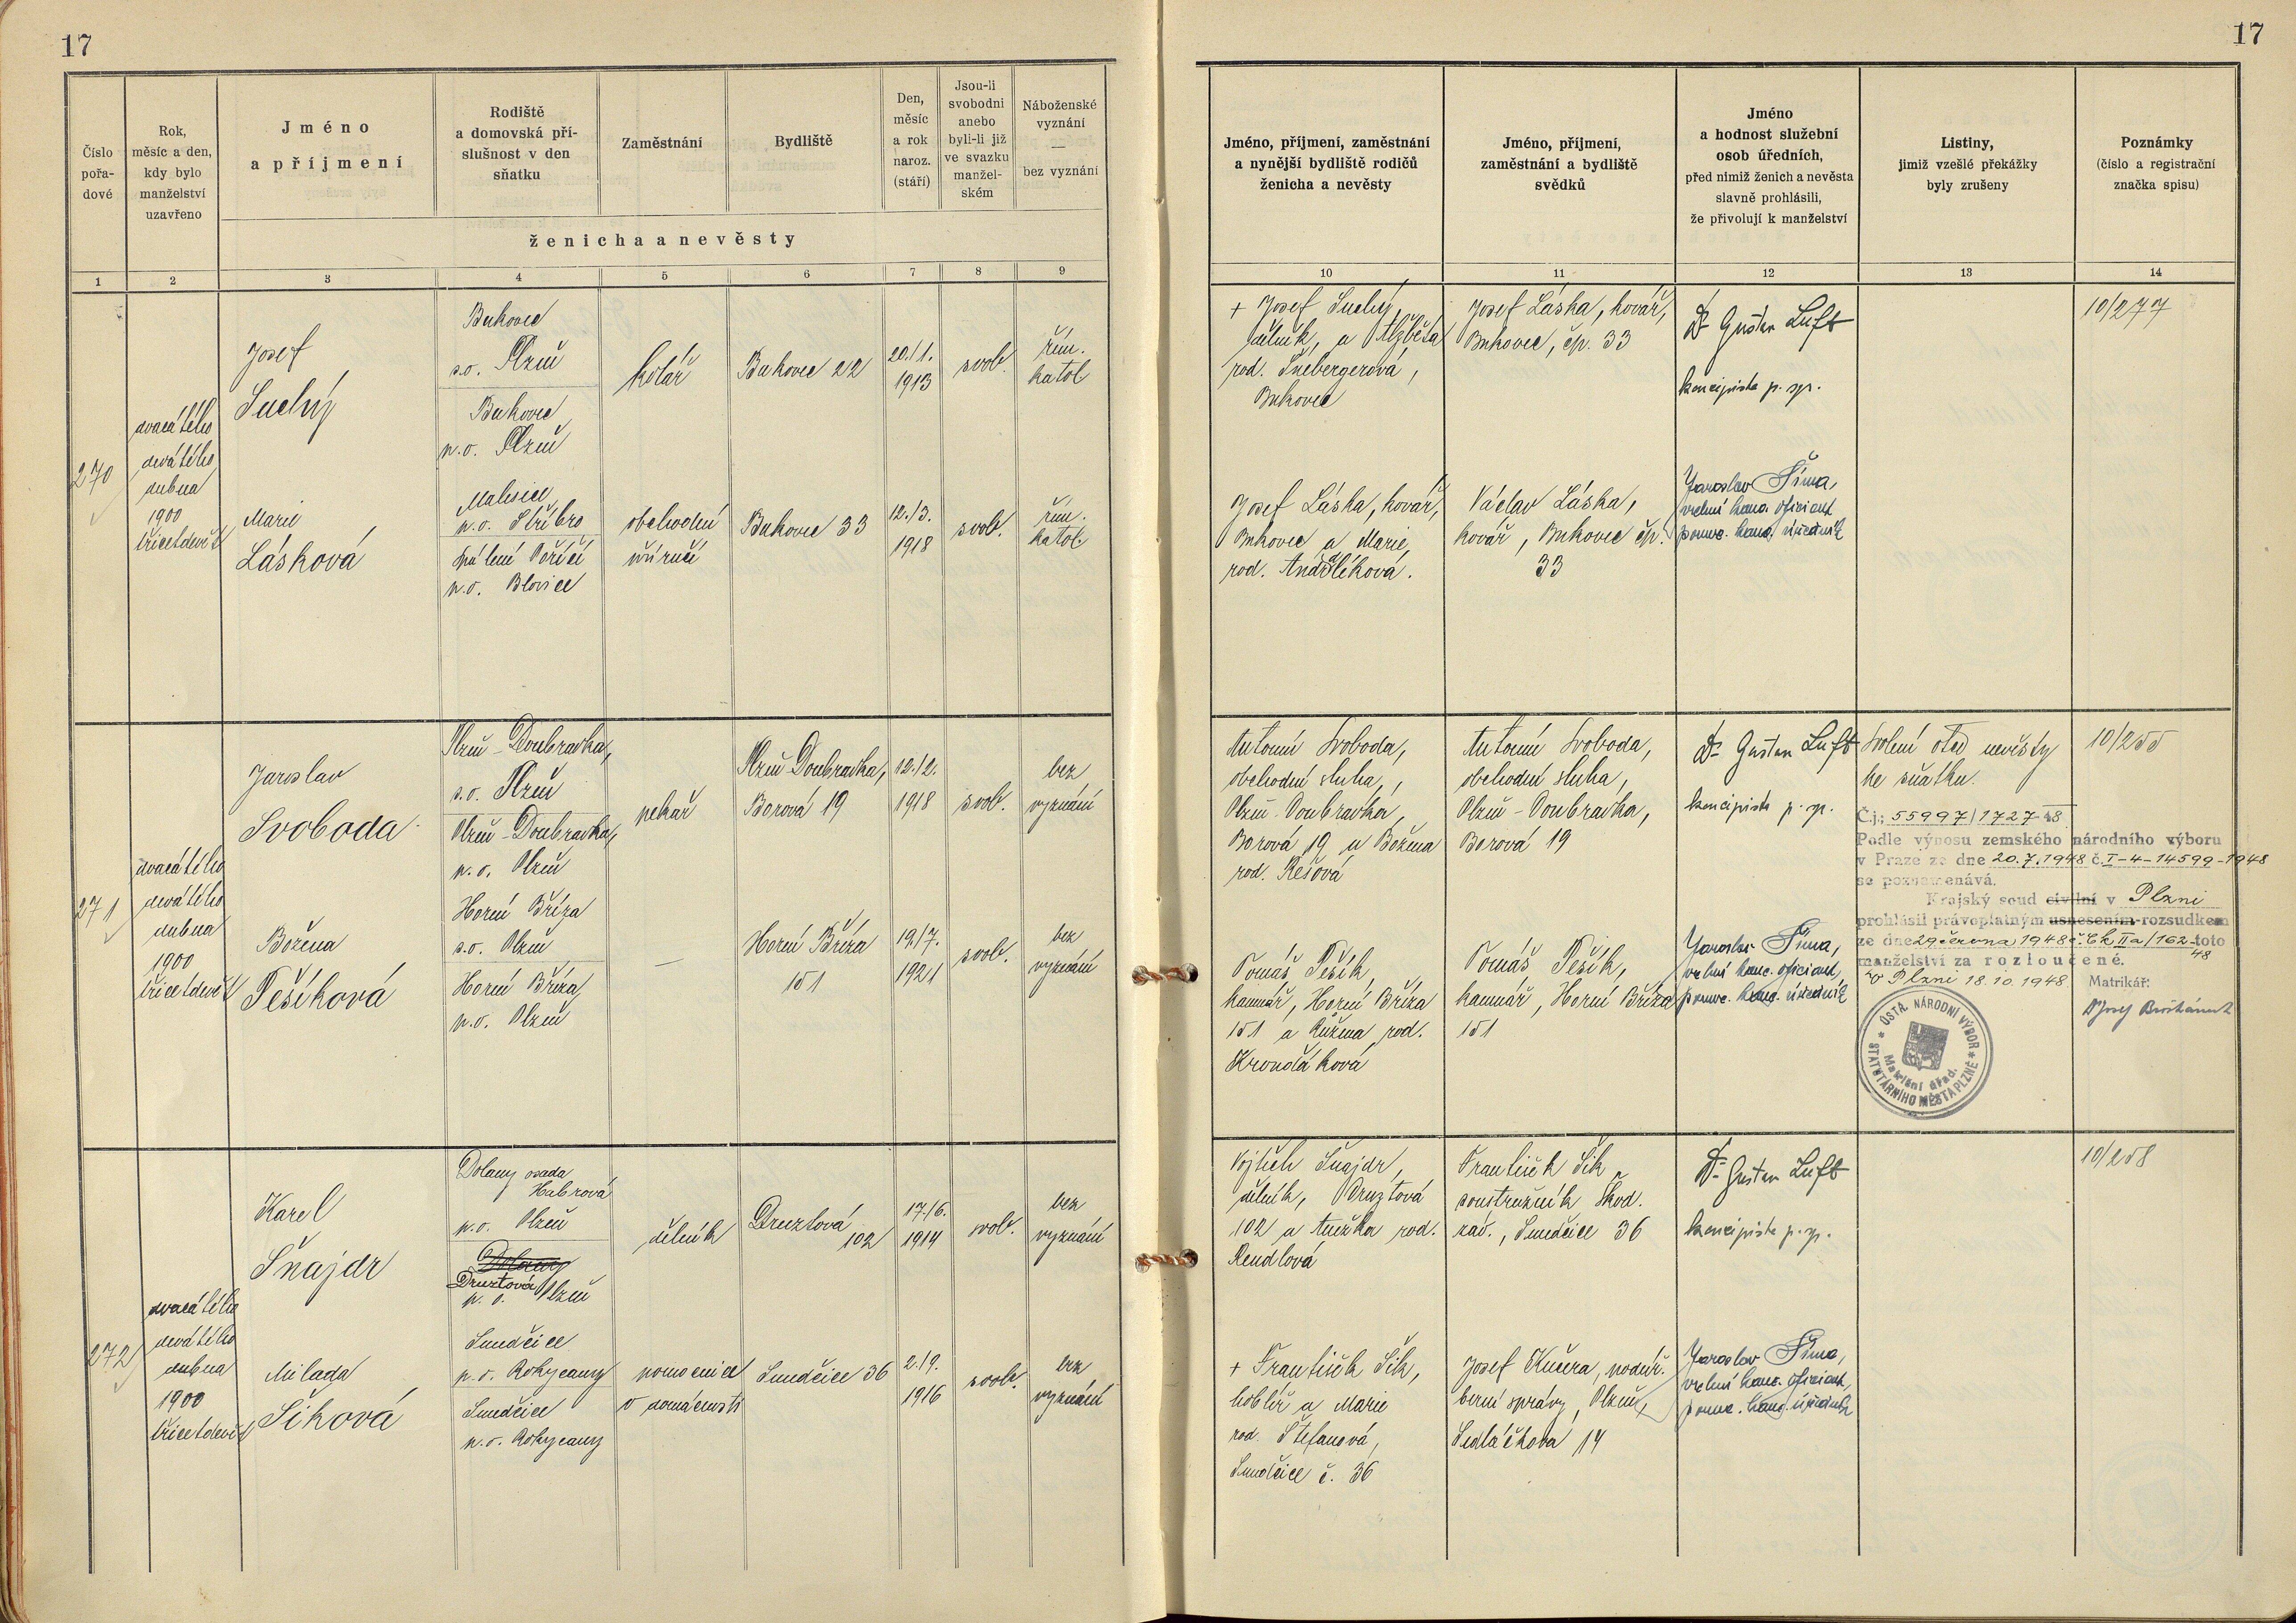 17
Číslo
pořa-
dové
Rok,
měsíc a den,
kdy bylo
manželství
uzavřeno
Jméno
a příjmení
Rodiště
a domovská pří-
slušnost v den
sňatku
Zaměstnání
Bydliště
Den,
měsíc
a rok
naroz.
(stáří)
Jsou-li
svobodni
anebo
byli-li již
ve svazku
manžel-
ském
Náboženské
vyznání
—
bez vyznání
ženicha a nevěsty
1 2 3 4 5 6 7 8 9
270
dvacátého
devátého
dubna
1900
třicetdevět
Josef
Suchý
Bukovec
s.o. Plzeň
Bukovec
p.o. Plzeň
kolář
Bukovec 22
20./1.
1913
svob.
řím.
katol.
Marie
Lásková
Malesice
p.o. Stříbro
Spálené Poříčí
p.o. Blovice
obchodní
příručí
Bukovec 33
12./3.
1918
svob.
řím.
katol.
271
dvacátého
devátého
dubna
1900
třicetdevět
Jaroslav
Svoboda
Plzeň-Doubravka,
s.o. Plzeň
Plzeň-Doubravka,
p.o. Plzeň
pekař
Plzeň Doubravka,
Borová 19
12./2.
1918
svob.
bez
vyznání
Božena
Pešíková
Horní Bříza
s.o. Plzeň
Horní Bříza
p.o. Plzeň
—
Horní Bříza
151
19./7.
1921
svob.
bez
vyznání
272
dvacátého
devátého
dubna
1900
třicetdevět
Karel
Šnajdr
Dolany osada
Habrová
p.o. Plzeň
Dolany
Druztová
p.o. Plzeň
dělník
Druztová
102
17./6.
1914
svob.
bez
vyznání
Milada
Šiková
Smědčice
p.o. Rokycany
Smědčice
p.o. Rokycany
pomocnice
v domácnosti
Smědčice 36
2./9.
1916
svob.
bez
vyznání
17
Jméno, příjmení, zaměstnání
a nynější bydliště rodičů
ženicha a nevěsty
Jméno, příjmení,
zaměstnání a bydliště
svědků
Jméno
a hodnost služební
osob úředních,
před nimiž ženich a nevěsta
slavně prohlásili,
že přivolují k manželství
Listiny,
jimiž vzešlé překážky
byly zrušeny
Poznámky
(číslo a registrační
značka spisu)
10 11 12 13 14
+ Josef Suchý,
dělník, a Alžběta
rod. Šnebergerová,
Bukovec
Josef Láska, kovář,
Bukovec, čp. 33
Dr Gustav Luft
koncipista p. sp.
10/277
Josef Láska, kovář,
Bukovec a Marie,
rod. Andrlíková.
Václav Láska,
kovář, Bukovec čp.
33
Jaroslav Šíma,
vrchní kanc. oficiant
pomoc. kanc. úředník
Antonín Svoboda,
obchodní sluha,
Plzeň-Doubravka,
Borová 19 a Božena
rod. Rešová
Antonín Svoboda,
obchodní sluha,
Plzeň-Doubravka,
Borová 19
Dr Gustav Luft
koncipista p. sp.
Svolení otce nevěsty
ke sňatku.
10/255
Č.j.: 55997/1727-48
Podle výnosu zemského národního výboru
v Praze ze dne 20.7.1948 č. I-4-14599-1948
se poznamenává.
Krajský soud civilní v Plzni
prohlásil právoplatným usnesením-rozsudkem
ze dne 29 června 1948 č. Ck IIa/162-48 toto
manželství za rozloučené.
V Plzni 18.10.1948 Matrikář:
Tomáš Pešík,
kamnář, Horní Bříza
151 a Růžena, rod.
Krondláková
Tomáš Pešík,
kamnář, Horní Bříza
151
Jaroslav Šíma,
vrchní kanc. oficiant,
pomoc. kanc. úředník
ÚSTŘ. NÁRODNÍ VÝBOR
STATUTÁRNÍHO MĚSTA PLZNĚ
Matriční úřad.
Vojtěch Šnajdr,
dělník, Druztová
102 a Anežka rod.
Rendlová
František Šik,
soustružník Škod.
záv., Smědčice 36
Dr Gustav Luft
koncipista p. sp.
10/258
+ František Šik,
hoblíř a Marie
rod. Štefanová,
Smědčice č. 36
Josef Kučera, podúř.
berní správy, Plzeň,
Sedláčkova 14
Jaroslav Šíma,
vrchní kanc. oficiant,
pomoc. kanc. úředník